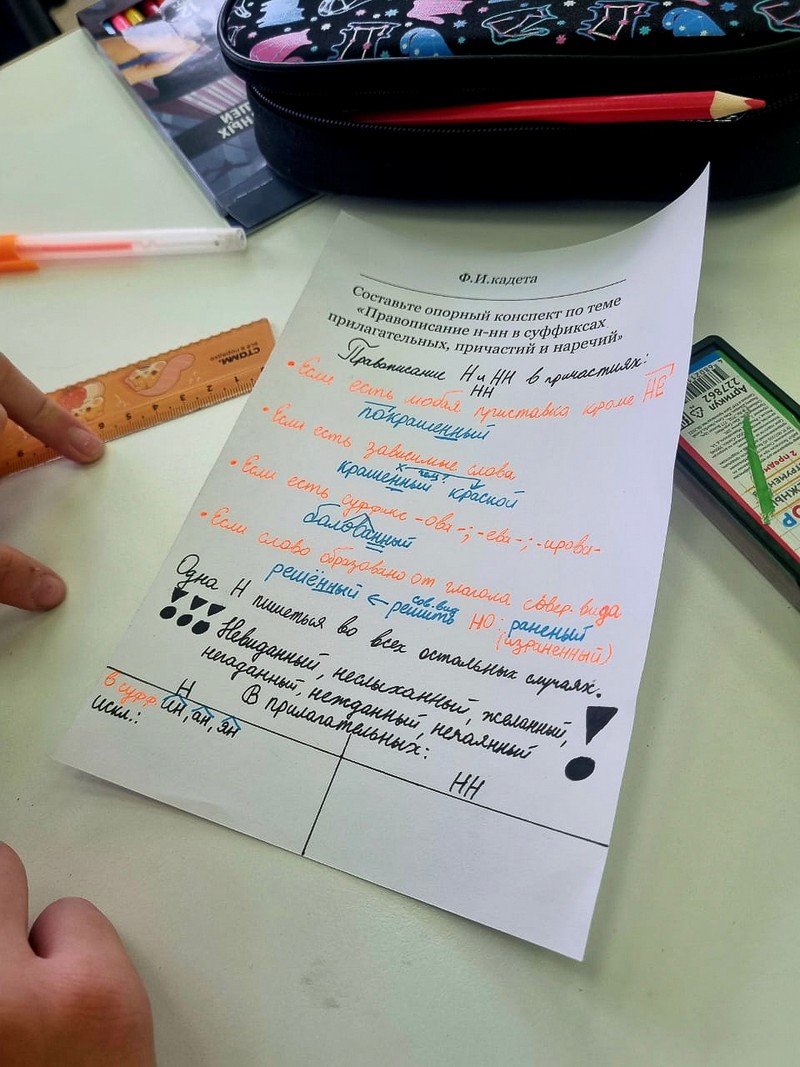 Ф.И.кадета
Составьте опорный конспект по теме
«Правописание н-нн в суффиксах
прилагательных, причастий и наречий»
Правописание Н и НН в причастиях:
НН
• Если есть любая приставка кроме НЕ
покрашенный
• Если есть зависимые слова
крашенный краской
• Если есть суффикс -ова-; -ева-; -ирова-
балованный
• Если слово образовано от глагола совер. вида
решённый ← решить сов. вид НО: раненый
(израненный)
Одна Н пишеться во всех остальных случаях.
!!! Невиданный, неслыханный, желанный,
негаданный, нежданный, нечаянный !
В прилагательных:
Н
НН
В суфф. ин, ан, ян
искл.:
СТАММ.
1 2 3 4 5 6 7 8 9
Артикул
227862